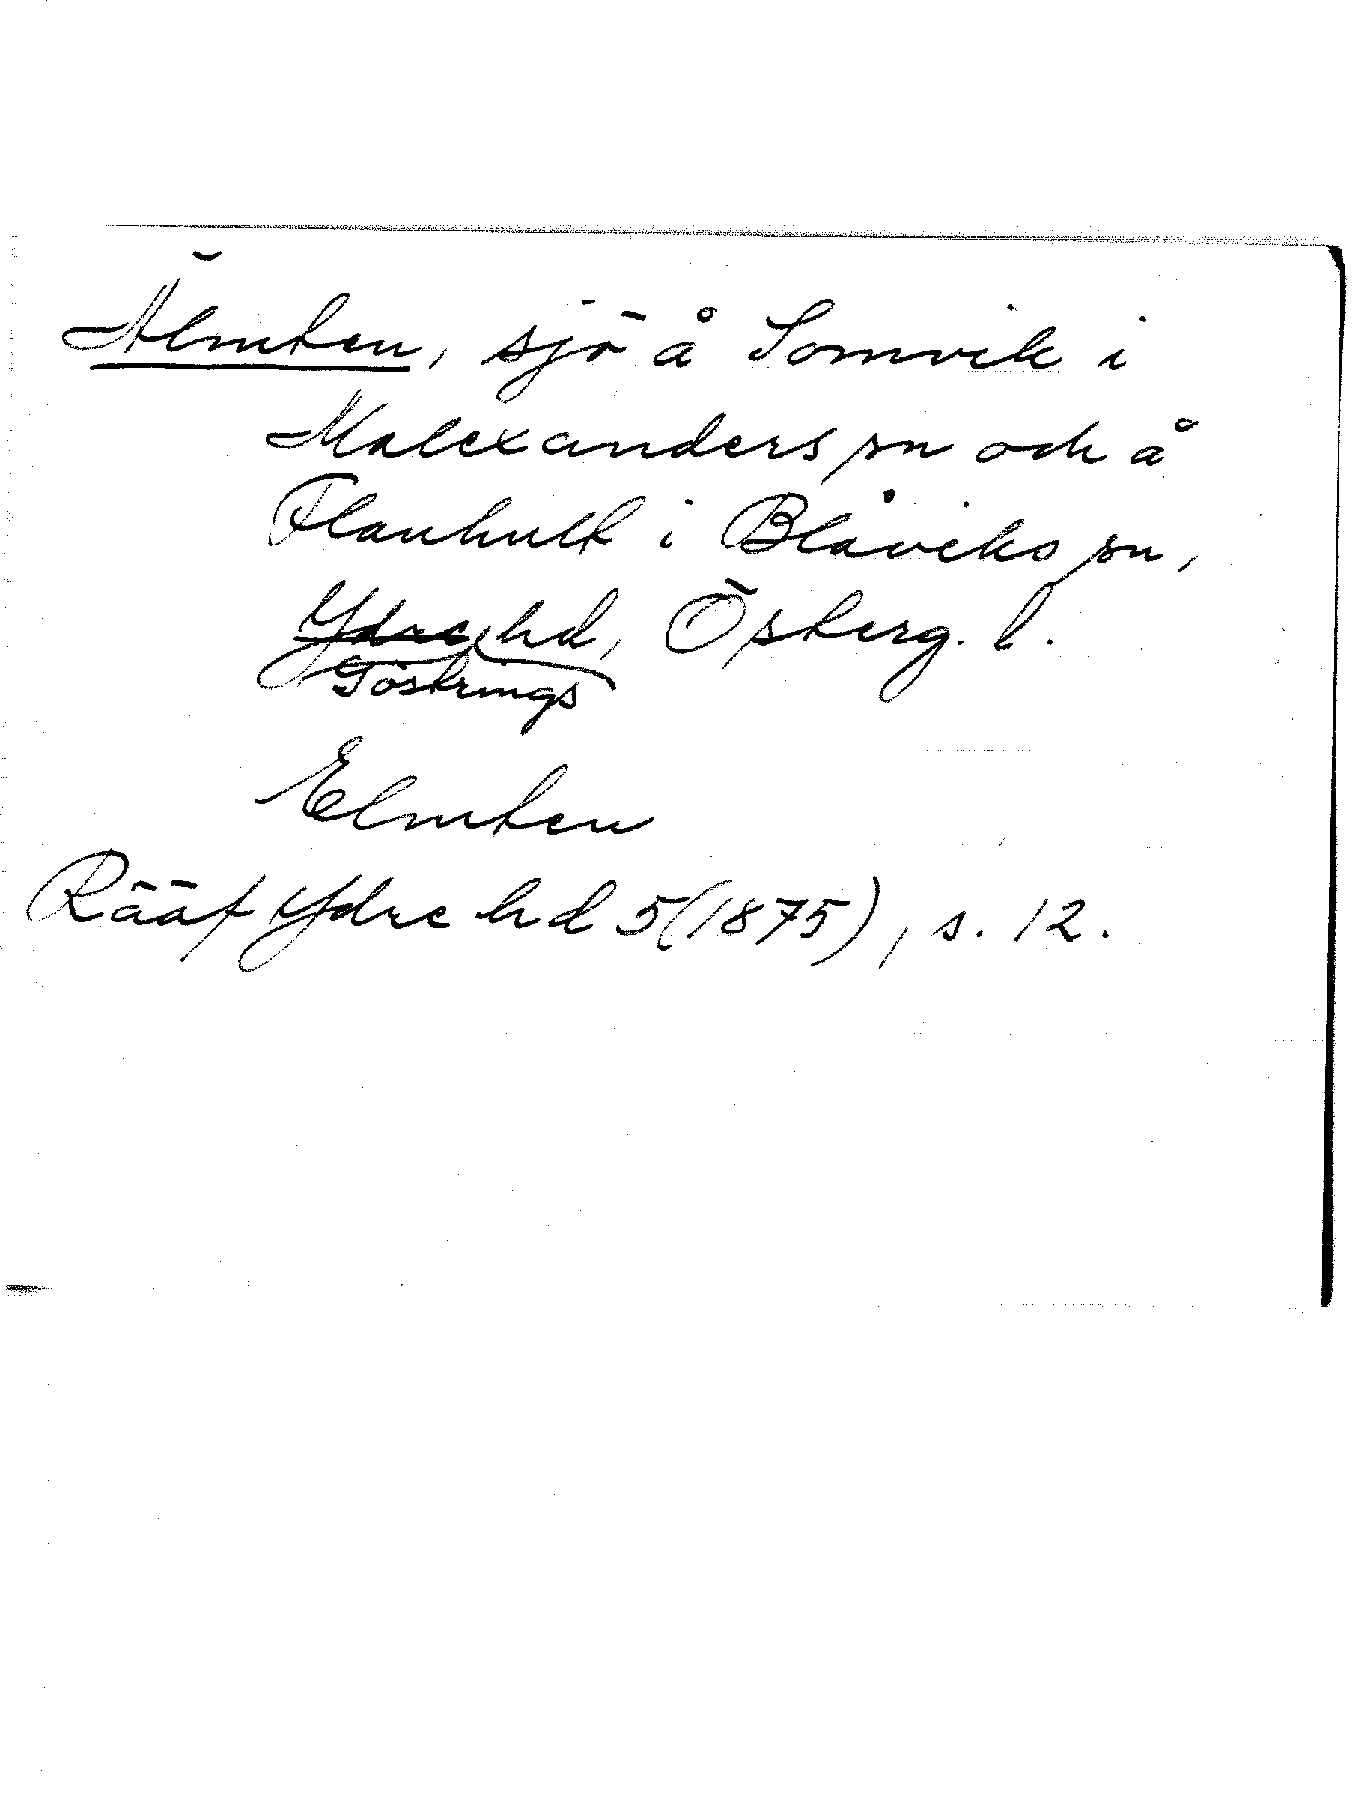 Älmten, sjö å Somvik i
Malexanders sn och å
Flanhult i Blåviks sn,
Ydre hd, Österg. l.
Göstrings
Elmten
Rääf Ydre hd 5(1875), s. 12.